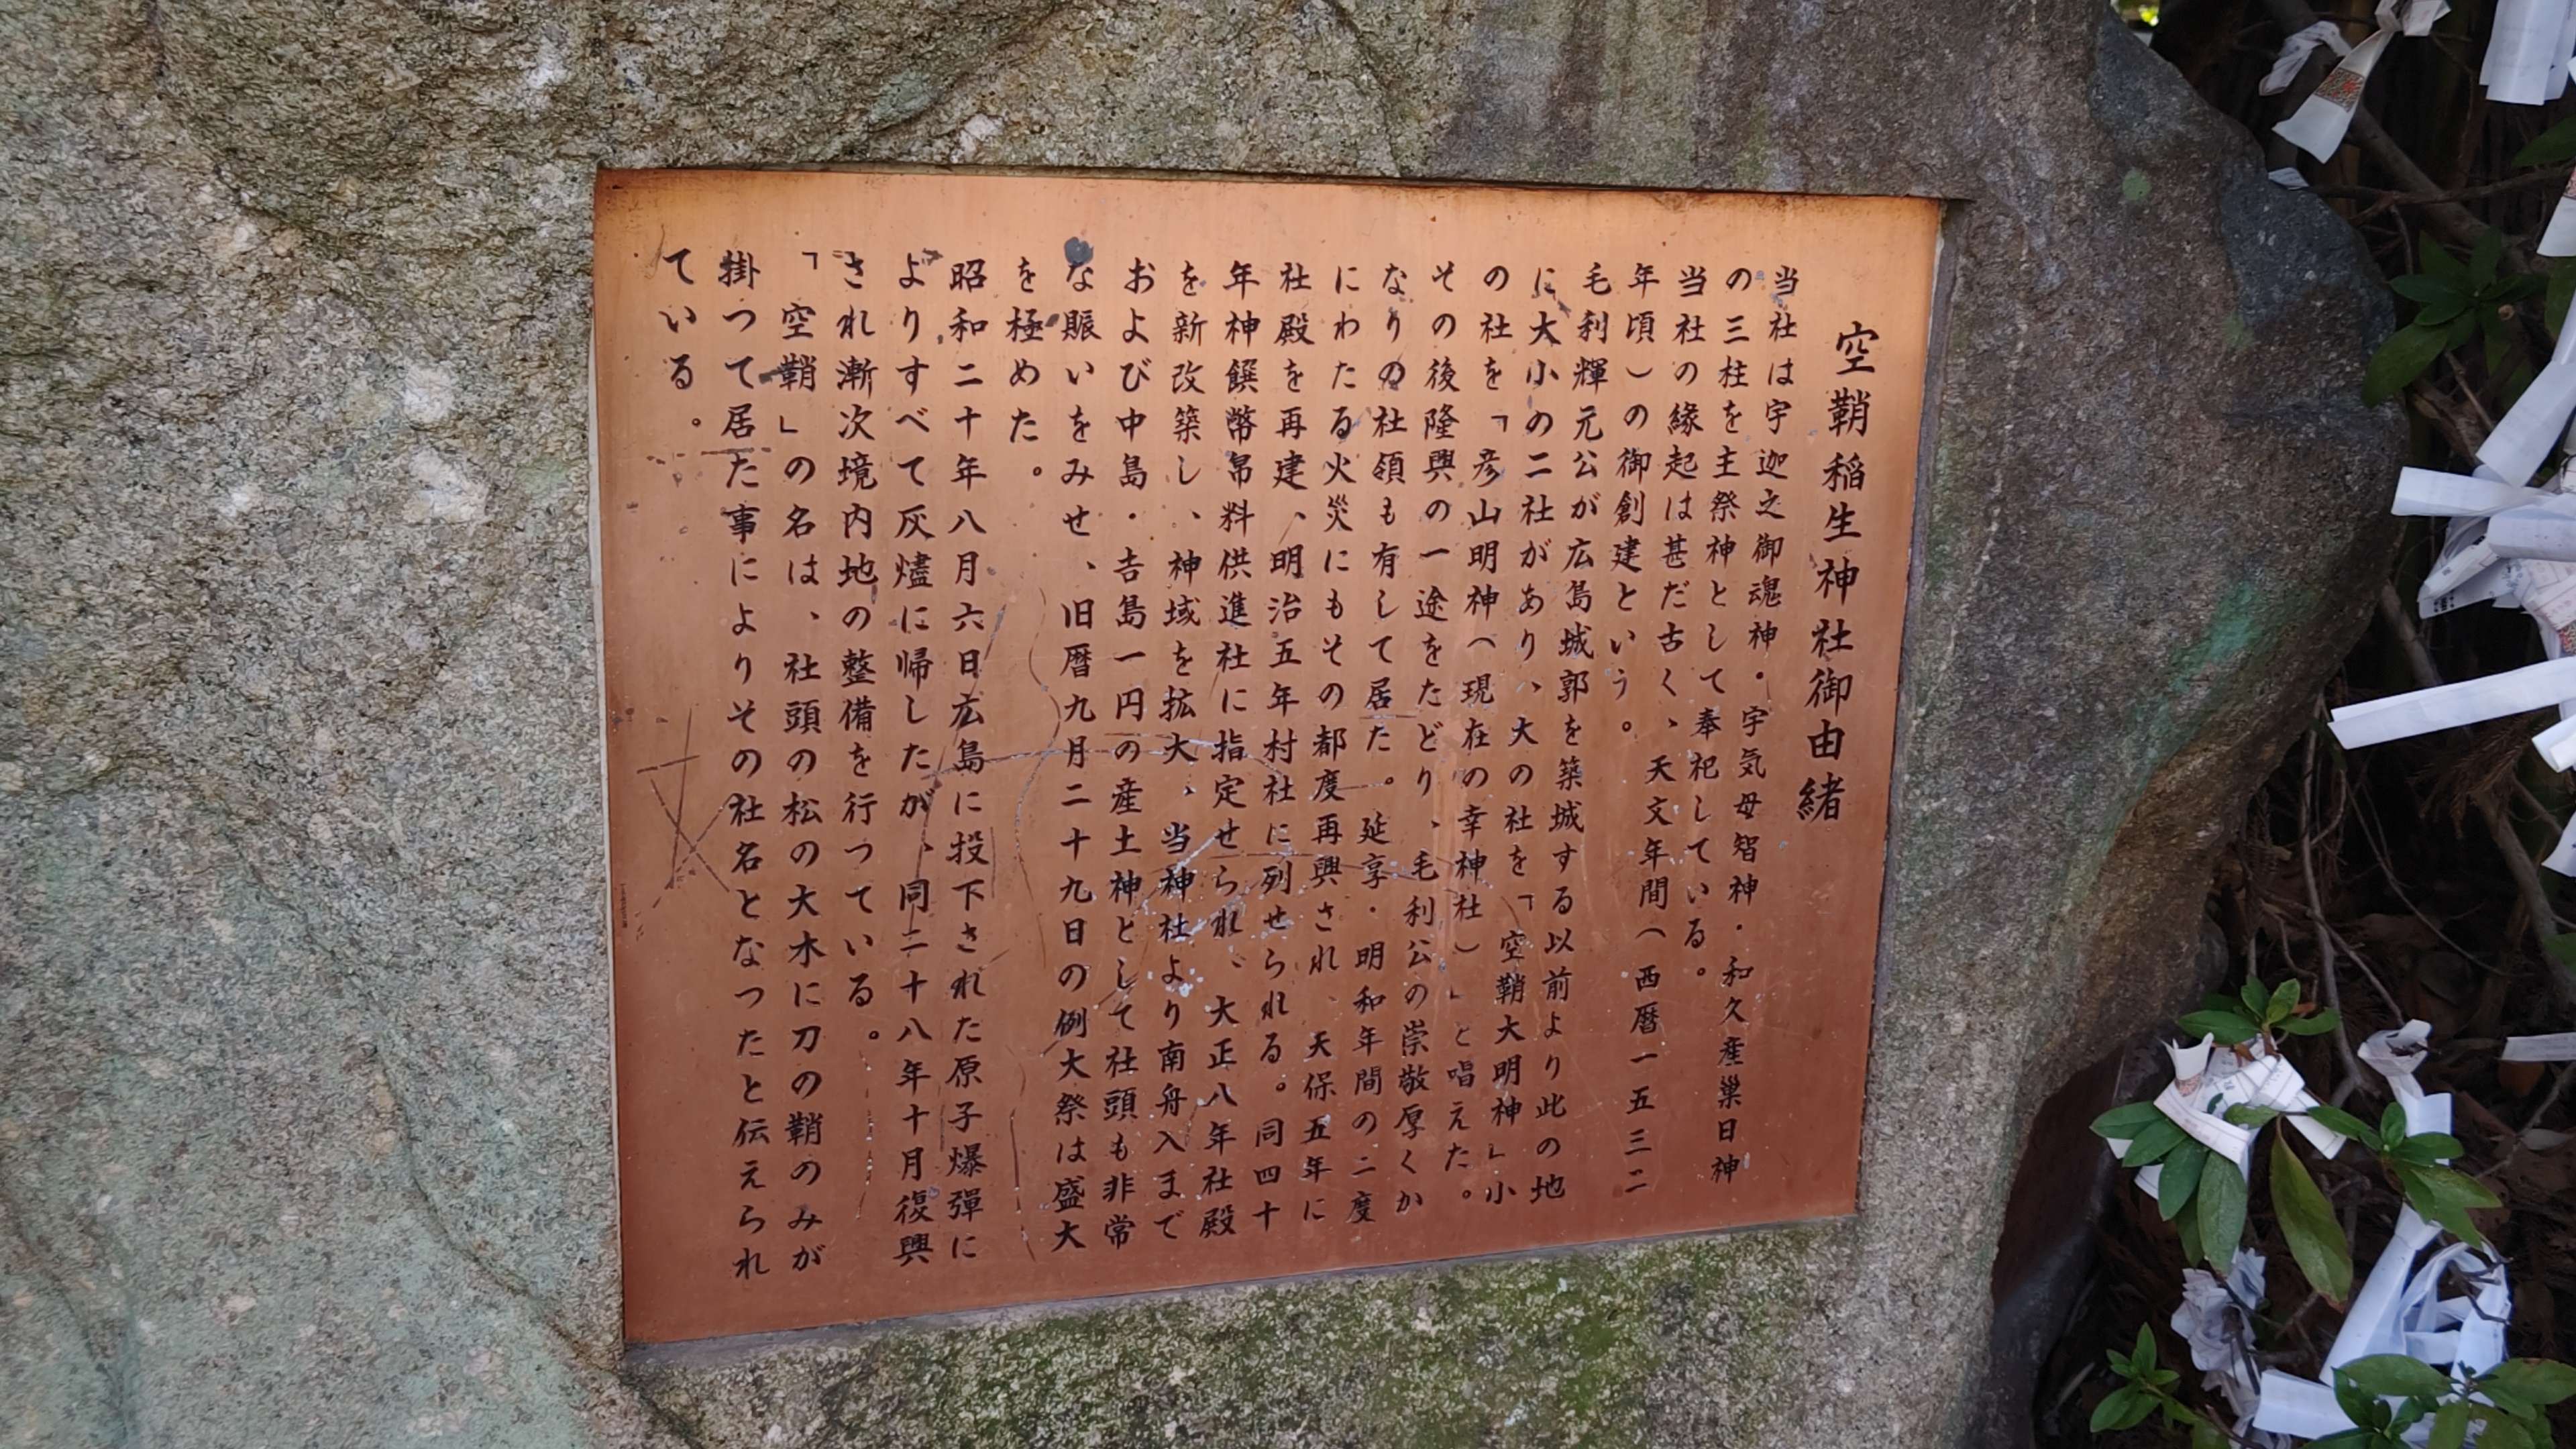 空鞘稲生神社御由緒
当社は宇迦之御魂神・宇気母智神・和久産巣日神
の三柱を主祭神として奉祀している。
当社の縁起は甚だ古く、天文年間(西暦一五三二
年頃)の御創建という。
毛利輝元公が広島城郭を築城する以前より此の地
に大小の二社があり、大の社を「空鞘大明神」小
の社を「彦山明神(現在の幸神社)」と唱えた。
その後隆興の一途をたどり、毛利公の崇敬厚くか
なりの社領も有して居た。延享・明和年間の二度
にわたる火災にもその都度再興され、天保五年に
社殿を再建、明治五年村社に列せられる。同四十
年神饌幣帛料供進社に指定せられ、大正八年社殿
を新改築し、神域を拡大、当神社より南舟入まで
および中島・吉島一円の産土神として社頭も非常
な賑いをみせ、旧暦九月二十九日の例大祭は盛大
を極めた。
昭和二十年八月六日広島に投下された原子爆彈に
よりすべて灰燼に帰したが、同二十八年十月復興
され漸次境内地の整備を行つている。
「空鞘」の名は、社頭の松の大木に刀の鞘のみが
掛つて居た事によりその社名となつたと伝えられ
ている。